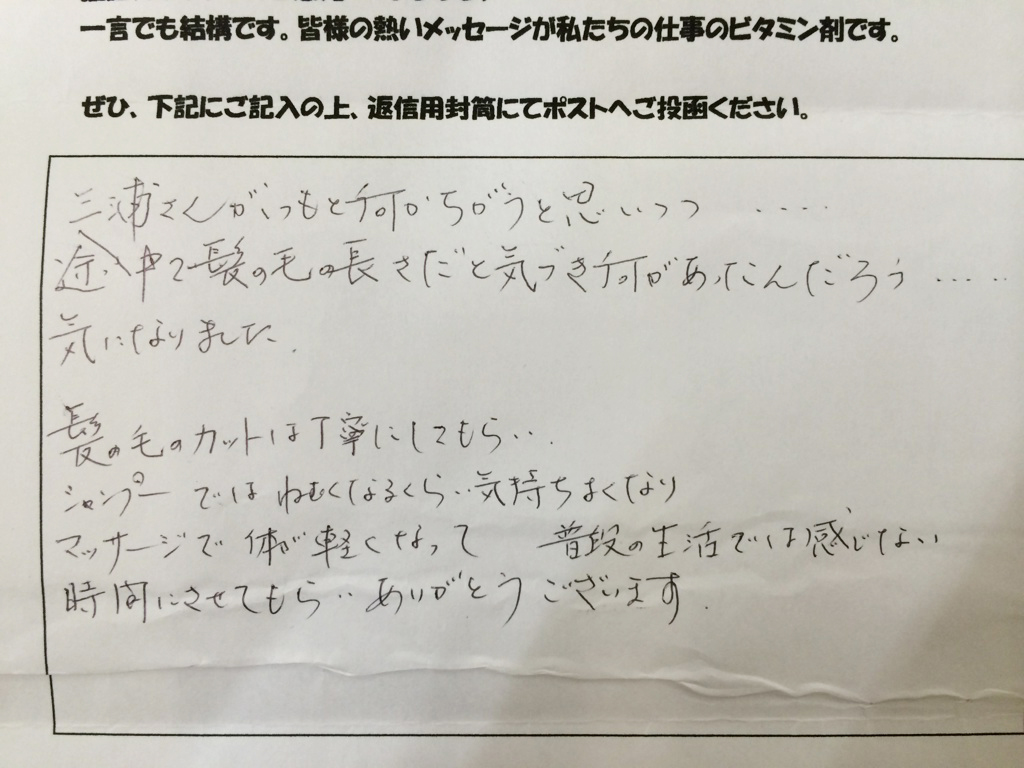 一言でも結構です。皆様の熱いメッセージが私たちの仕事のビタミン剤です。
ぜひ、下記にご記入の上、返信用封筒にてポストへご投函ください。
三浦さんがいつもと何かちがうと思いつつ ‥‥
途中で髪の毛の長さだと気づき何があったんだろう ‥‥‥
気になりました.
髪の毛のカットは丁寧にしてもらい‥
シャンプーではねむくなるくらい気持ちよくなり
マッサージで体が軽くなって 普段の生活では感じない
時間にさせてもらい‥ありがとうございます.